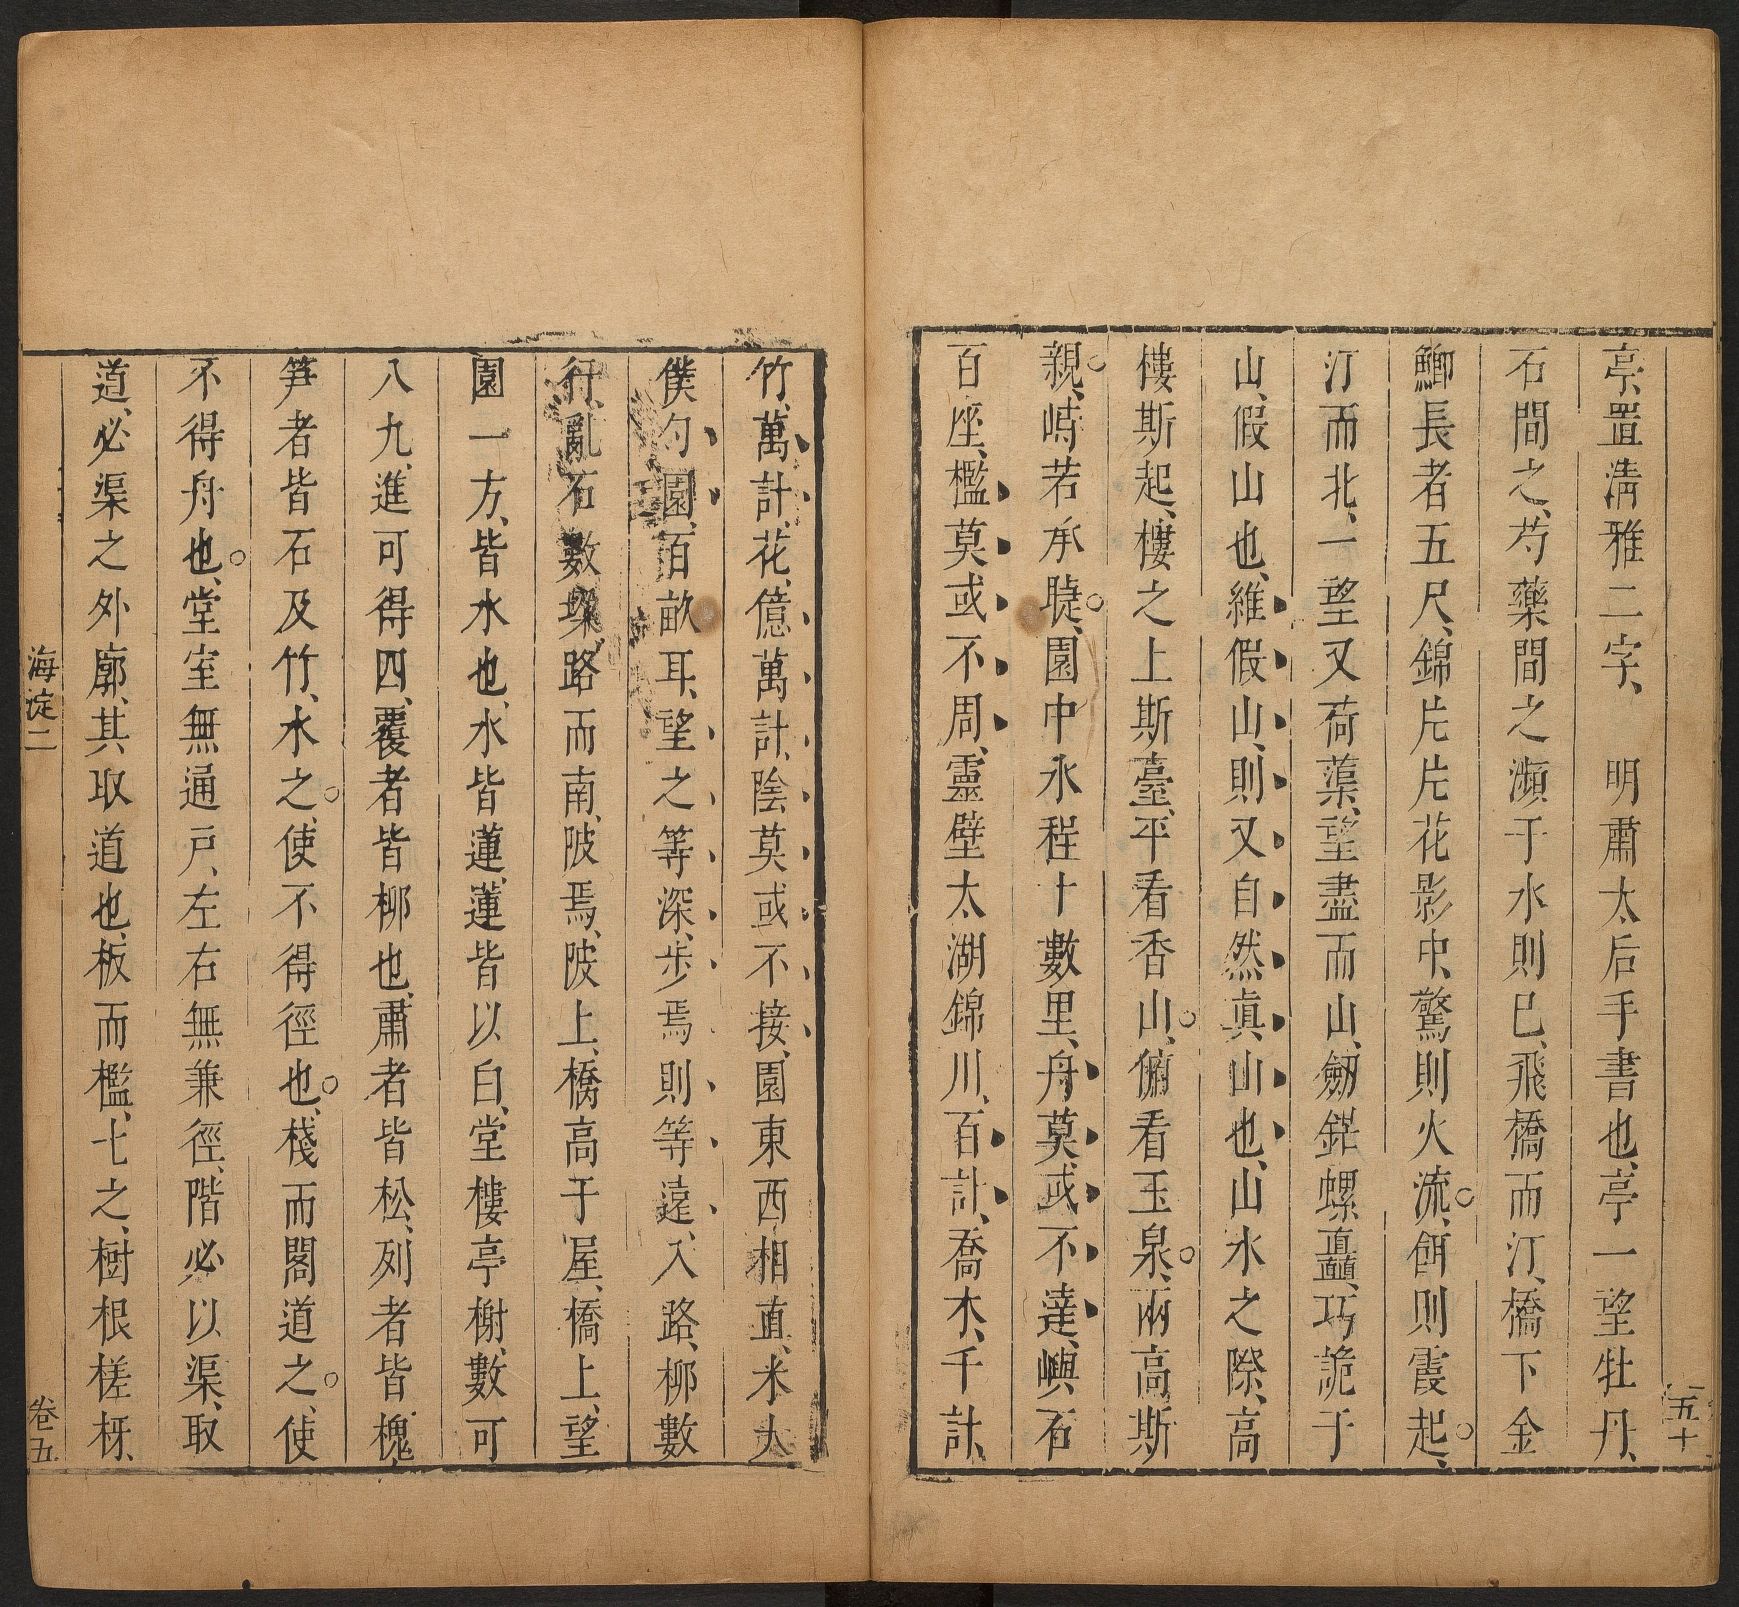 亭、置清雅二字、　明肅太后手書也、亭一望牡丹、
石間之、芍藥間之、瀕于水則已、飛橋而汀、橋下金
鯽、長者五尺、錦片片花影中、驚則火流、餌則霞起、
汀而北、一望又荷蕖、望盡而山、劒鋩螺矗、巧詭于
山、假山也、維假山、則又自然眞山也、山水之際、高
樓斯起、樓之上斯臺、平看香山、俯看玉泉、兩高斯
親、峙若承睫、園中水程十數里、舟莫或不達、嶼石
百座、檻莫或不周、靈壁太湖錦川、百計、喬木、千計、
五十
竹、萬計、花、億萬計、陰莫或不接、園東西相直、米太
僕勺園、百畝耳、望之等深、步焉則等遠、入路、柳數
行、亂石數垜、路而南、陂焉、陂上、橋高于屋、橋上、望
園一方、皆水也、水皆蓮、蓮皆以白、堂樓亭榭、數可
八九、進可得四、覆者皆柳也、肅者皆松、列者皆槐、
笋者皆石及竹、水之、使不得徑也、棧而閣道之、使
不得舟也、堂室無通戶、左右無兼徑、階必以渠、取
道、必渠之外廓、其取道也、板而檻、七之、樹根槎枒、
海淀二
卷五